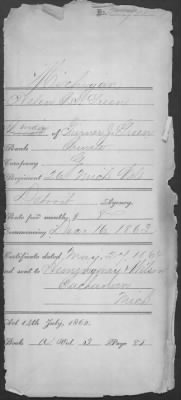 Michigan
Helen S. Green
Widow of Turner J. Green
Rank Private
Company G
Regiment 26 Mich Vols
Detroit Agency.
Rate paid monthly, $ 8
Commencing Dec 16 1863
Certificate dated May 27 1867
and sent to Hemingway & Wilson
Mich
Act 14th July, 1862.
Book A Vol. 3 Page 81